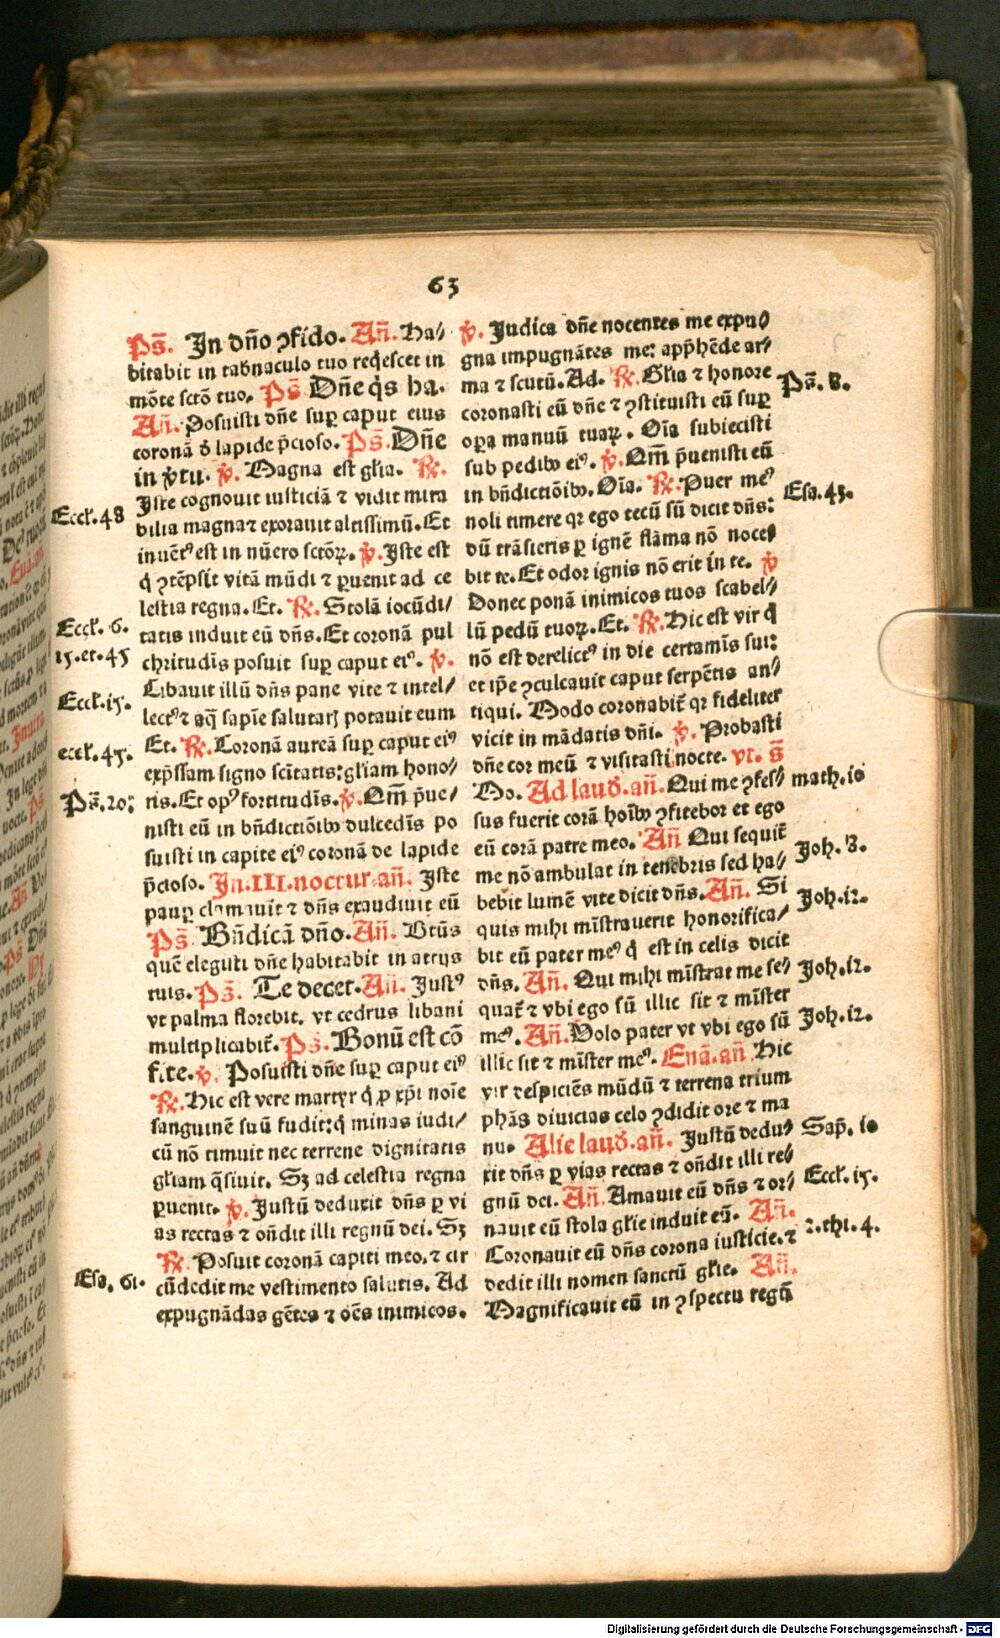 63
Ps̄. In dn̄o ꝯfido. An̄. Ha⸗
bitabit in tabnaculo tuo reqͥescet in
mōte sctō tuo. Ps̄ Dn̄e qͥs ha.
An̄. Posuisti dn̄e suꝑ caput eius
coronā ð lapide p̄cioso. Ps̄. Dn̄e
in v̓tu. ℣. Magna est gl̓ia. ℟.
Iste cognouit iusticiā ⁊ vidit mira
bilia magna⁊ exorauit altissimū. Et
inuētꝰ est in nūero sctōꝝ. ℣. Iste est
qͥ ꝯtēpsit vitā mūdi ⁊ ꝑuenit ad ce
lestia regna. Et. ℟. Stolā iocūdi⸗
tatis induit eū dn̄s. Et coronā pul
chritudīs posuit suꝑ caput eiꝰ. ℣.
Cibauit illū dn̄s pane vite ⁊ intel⸗
lectꝰ⁊ aq̄ sapīe salutarꝭ potauit eum
Et. ℟. Coronā aureā suꝑ caput eiꝰ
exp̄ssam signo scītatis: gl̓iam hono⸗
ris. Et opꝰ fortitudīs. ℣. Qm̄ p̄ue⸗
nisti eū in bn̄dictiōibꝫ dulcedīs po
suisti in capite eiꝰ coronā de lapide
p̄cioso. In .III. noctur. an̄. Iste
pauꝑ clamauit ⁊ dn̄s exaudiuit eū
Ps̄. Bn̄dicā dn̄o. An̄. Btūs
quē elegisti dn̄e habitabit in atrijs
tuis. Ps̄. Te decet. An̄. Iustꝰ
vt palma florebit. vt cedrus libani
multiplicabit̄. Ps̄. Bonū est cō
fite. ℣. Posuisti dn̄e suꝑ caput eiꝰ
℟. Hic est vere martyr qͥ ꝓ xp̄i noīe
sanguinē suū fudit: qͥ minas iudi⸗
cū nō timuit nec terrene dignitatis
gl̓iam q̄siuit. Sꝫ ad celestia regna
ꝑuenit. ℣. Iustū deduxit dn̄s ꝑ vi
as rectas ⁊ on̄dit illi regnū dei. Sꝫ
℟. Posuit coronā capiti meo. ⁊ cir
cūdedit me vestimento salutis. Ad
expugnādas gētes ⁊ oēs inimicos.
Eccl̓. 48
Eccl̓. 6.
15. et. 45
Eccl̓. 15.
eccl̓. 45.
Ps̄. 20.
Esa. 61.
℣. Iudica dn̄e nocentes me expu⸗
gna impugnātes me: app̄hēde ar⸗
ma ⁊ scutū. Ad. ℟. Gl̓ia ⁊ honore
coronasti eū dn̄e ⁊ ꝯstituisti eū suꝑ
oꝑa manuū tuaꝝ. Oīa subiecisti
sub pedibꝫ eiꝰ. ℣. Qm̄ p̄uenisti eū
in bn̄dictiōibꝫ. Oīa. ℟. Puer meꝰ
noli timere qꝛ ego tecū sū dicit dn̄s:
dū trāsieris ꝑ ignē flāma nō noce⸗
bit te. Et odor ignis nō erit in te. ℣
Donec ponā inimicos tuos scabel⸗
lū pedū tuoꝝ. Et. ℟. Hic est vir qͥ
nō est derelictꝰ in die certamīs sui:
et ip̄e ꝯculcauit caput serpētis an⸗
tiqui. Modo coronabit̄ qꝛ fideliter
vicit in mādatis dn̄i. ℣. Probasti
dn̄e cor meū ⁊ visitasti nocte. vt. s̄
Mo. Ad lauð. an̄. Qui me ꝯfes⸗
sus fuerit corā hoībꝫ ꝯfitebor et ego
eū corā patre meo. An̄ Qui sequit̄
me nō ambulat in tenebris sed ha⸗
bebit lumē vite dicit dn̄s. An̄. Si
quis mihi mīstrauerit honorifica⸗
bit eū pater meꝰ qͥ est in celis dicit
dn̄s. An̄. Qui mihi mīstrat me se⸗
quat̄ ⁊ vbi ego sū illic sit ⁊ mīster
meꝰ. An̄. Uolo pater vt vbi ego sū
illic sit ⁊ mīster meꝰ. Euā. an̄ Hic
vir despiciēs mūdū ⁊ terrena trium
phās diuicias celo ꝯdidit ore ⁊ ma
nu. Alie lauð. an̄. Iustū dedu⸗
xit dn̄s ꝑ vias rectas ⁊ on̄dit illi re⸗
gnū dei. An̄. Amauit eū dn̄s ⁊ or⸗
nauit eū stola gl̓ie induit eū. An̄.
Coronauit eū dn̄s corona iusticie. ⁊
dedit illi nomen sanctū gl̓ie. An̄.
Magnificauit eū in ꝯspectu regū
Ps̄. 8.
Esa. 43.
math. 10
Joh. 8.
Joh. 12.
Joh. 12.
Joh. 12.
Sap̄. 10
Eccl̓. 15.
2. thi. 4.
Digitalisierung gefördert durch die Deutsche Forschungsgemeinschaft - DFG